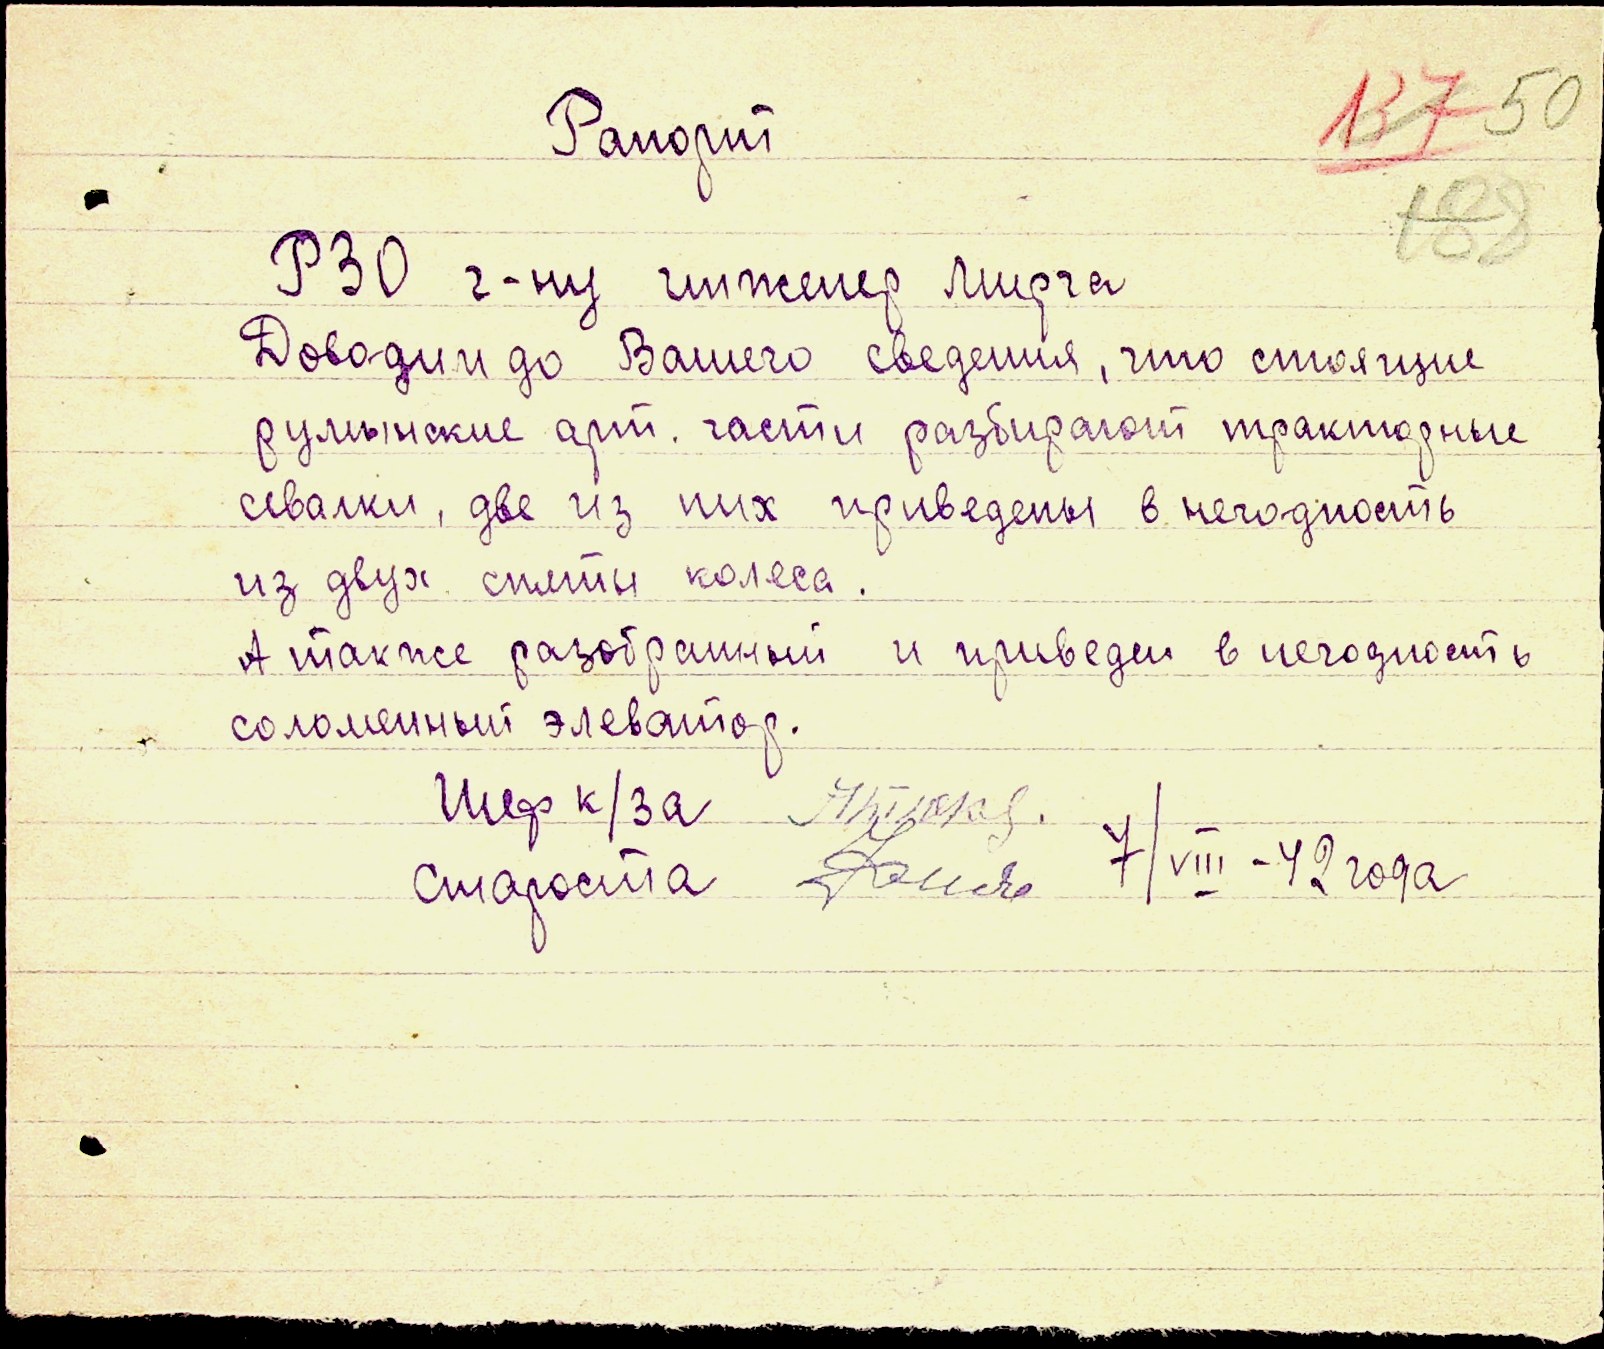 137 50
188
Рапорт
РЗО г-ну инженер Мирча
Доводим до Вашего сведения, что стоящие
румынские арт. части разбирают тракторные
севалки, две из них приведены в негодность
из двух сняты колеса.
А также разобранный и приведен в негодность
соломенный элеватор.
Шеф к/за
Староста 7/VIII -42 года